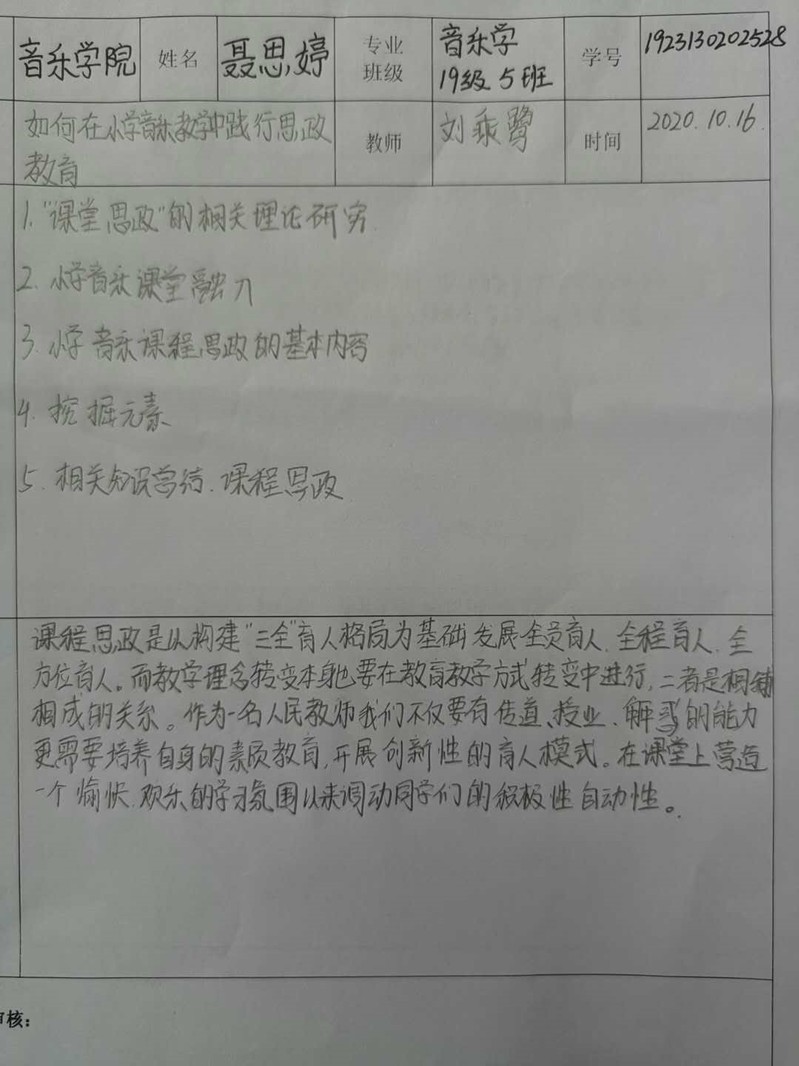 音乐学院 姓名 聂思婷 专业班级 音乐学 19级5班 学号 1923130202528
如何在小学音乐教学中践行思政
教育 教师 刘乘鹭 时间 2020.10.16.
1."课堂思政"的相关理论研究
2.小学音乐课堂融入
3.小学音乐课程思政的基本内容
4.挖掘元素
5.相关知识总结.课程思政
课程思政是以构建"三全"育人格局为基础发展全员育人.全程育人.全
方位育人。而教学理念转变本身也要在教育教学方式转变中进行,二者是相辅
相成的关系。作为一名人民教师我们不仅要有传道、授业、解惑的能力
更需要培养自身的素质教育,开展创新性的育人模式。在课堂上营造
一个愉快.欢乐的学习氛围以来调动同学们的积极性自动性。
审核: